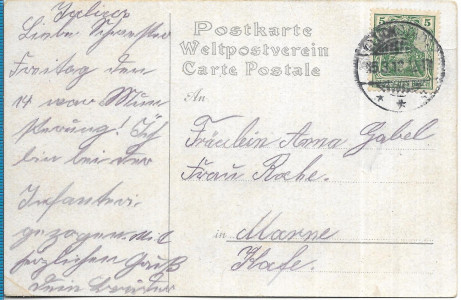 Liebe Schwester
Freitag den
14 war Mun
sterung! Ich
bin bei der
Infanteri
gezogen. Mit
herzlichen Gruß
Dein Bruder
Postkarte
Weltpostverein
Carte Postale
An
Fräulein Anna Gabel
Frau Rahe.
in
Marne
Hafe.
5 5